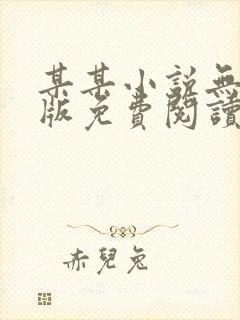 某某小說無
版免費閱讀
赤兒兔